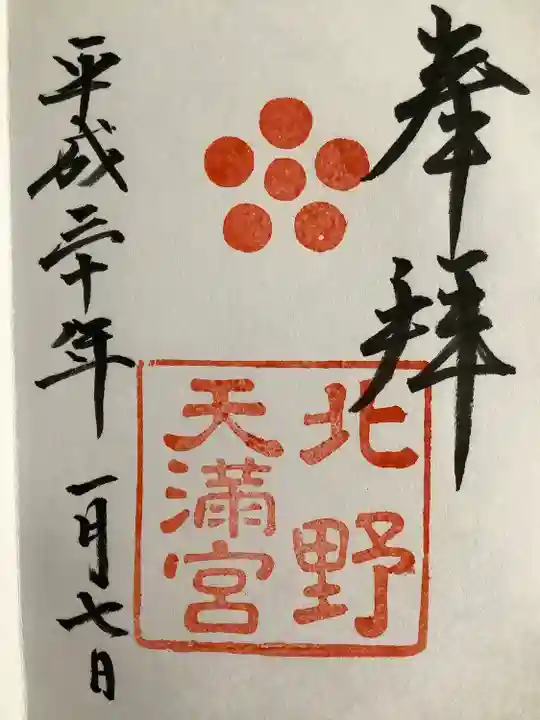 奉拝
北野
天満宮
平成三十年一月七日